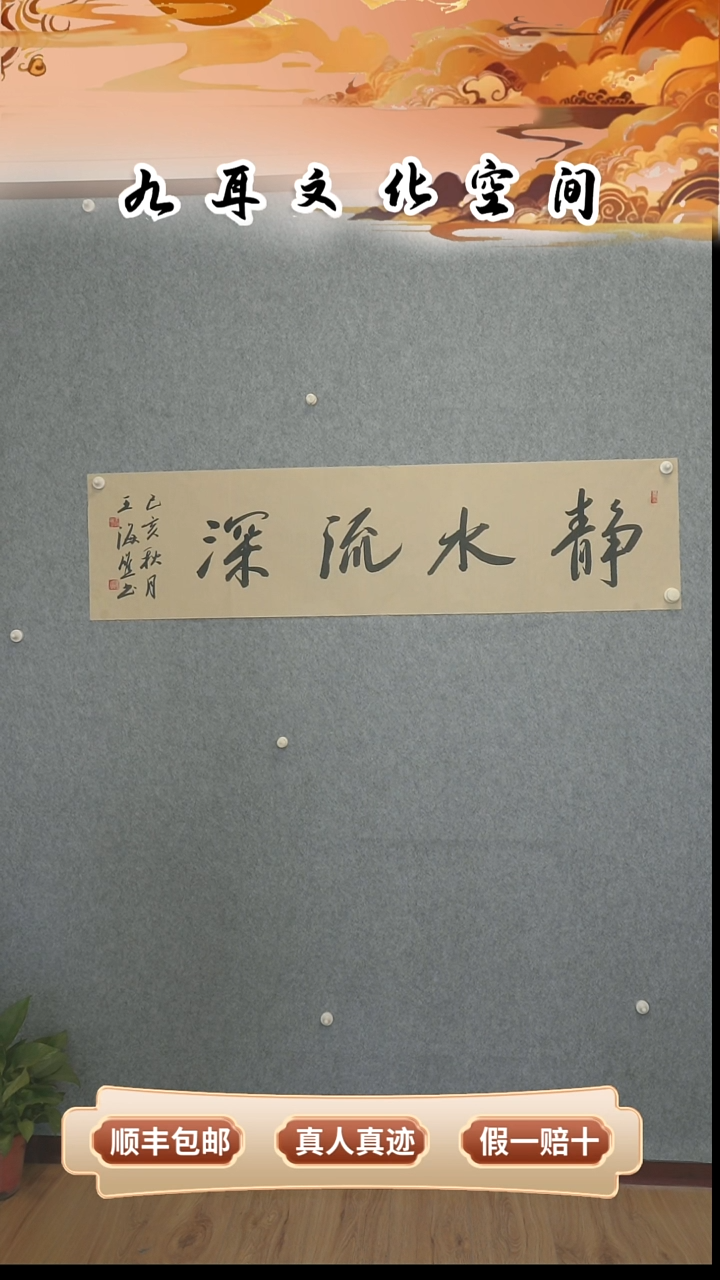 九耳文化空间
静水流深
己亥秋月
王海
书
顺丰包邮
真人真迹
假一赔十